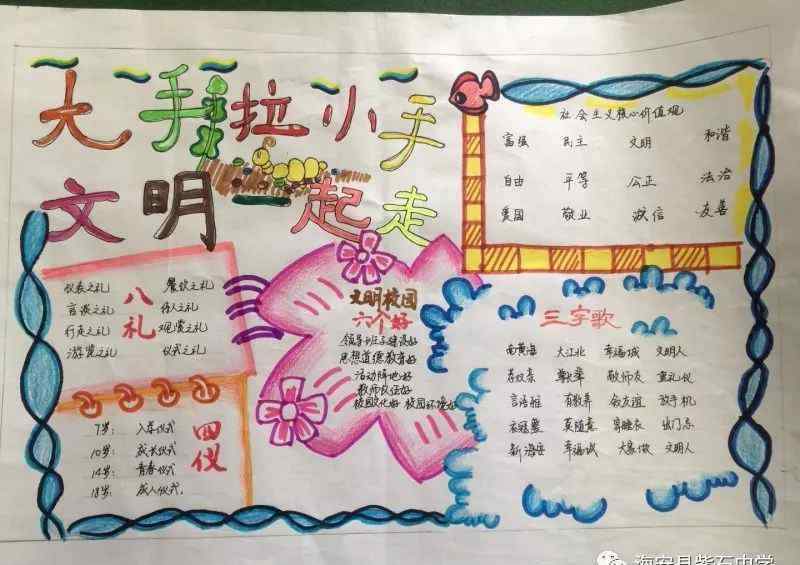 大手拉小手
文明一起走
社会主义核心价值观
富强 民主 文明 和谐
自由 平等 公正 法治
爱国 敬业 诚信 友善
八礼
仪表之礼 餐饮之礼
言谈之礼 待人之礼
行走之礼 观赏之礼
游览之礼 仪式之礼
四仪
7岁: 入学仪式
10岁: 成长仪式
14岁: 青春仪式
18岁: 成人仪式
文明校园
六个好
领导班子建设好
思想道德教育好
活动阵地好
教师队伍好
校园文化好 校园环境好
三字歌
南黄海 大江北 幸福城 文明人
孝敬亲 尊长辈 敬师友 重礼仪
言语雅 有教养 叙友谊 放手机
衣冠整 莫随意 穿睡衣 出门忌
新海安 幸福城 大家做 文明人
海安县紫石中学